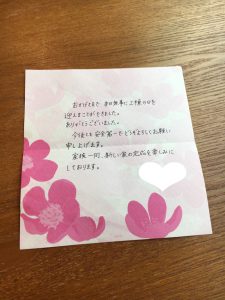 おかげさまで、本日無事に上棟の日を
迎えることができました。
ありがとうございました。
今後とも安全第一でどうぞよろしくお願い
申し上げます。
家族一同、新しい家の完成を楽しみに
しております。